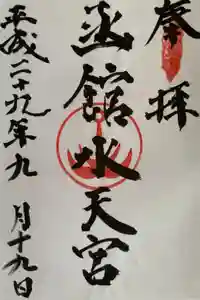 奉拝
函館水天宮
平成二十九年九月十九日